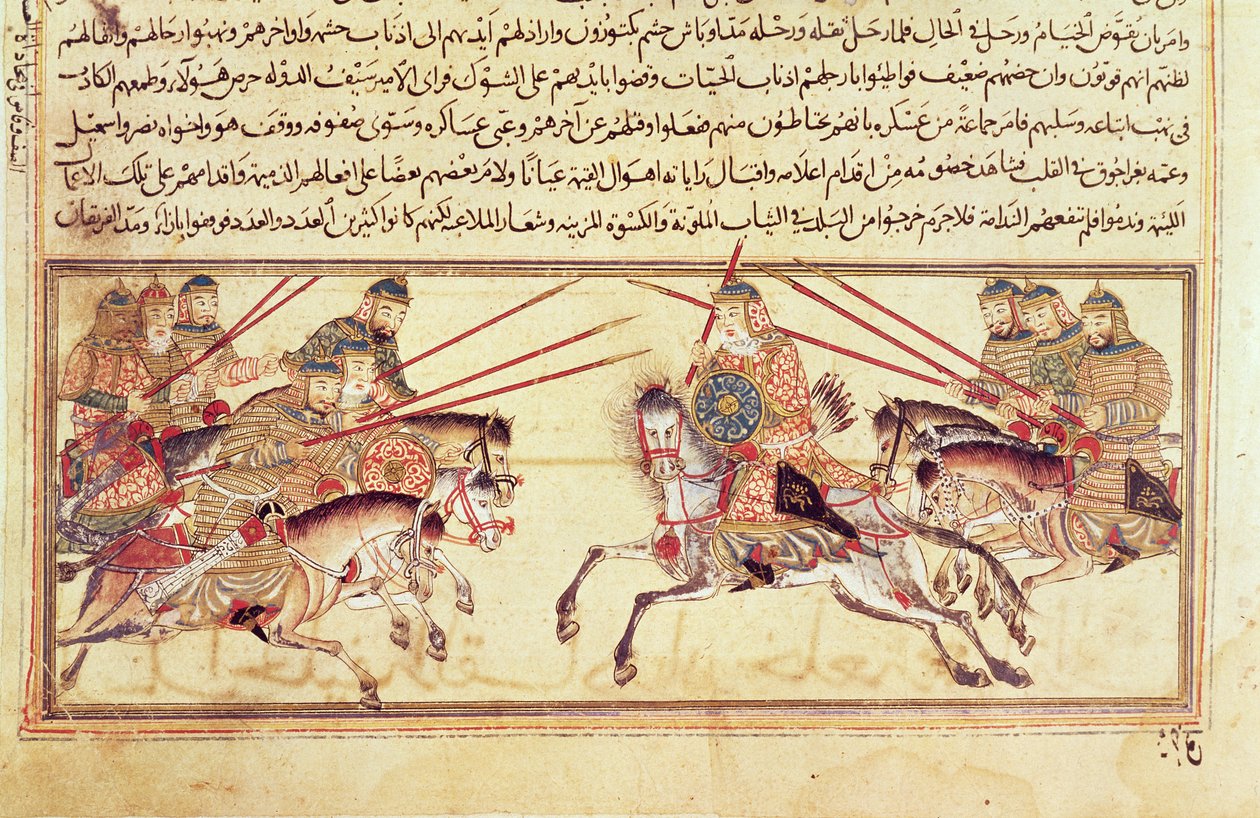 وامر بان يقوّض الخيام ورحل في الحال فلما رحل ثقله ورحله مدّ اوباش حشم بكتوزون واراذلهم أيديهم الى اذناب حشمه واواخرهم ونهبوا رحالهم واثقالهم
لظنهم انهم قويّون وان خصمهم ضعيف فواطيئوا بارجلهم اذناب الحيّات وقضوا بايديهم على الشوك فراى الامير سيف الدوله حرص هؤلاء وطمعهم الكاذب
في نهب اتباعه وسلبهم فامر جماعة من عسكره بانهم يحتاطون منهم ففعلوا وقتلهم عن آخرهم وعبّى عساكره وسوّى صفوفه ووقف هو واخواه نصر واسمعيل
وعمه بغراجوق في القلب فشاهد خصومه من اقدام اعلامه واقبال راياته اهوال القيمة عيانًا ولام بعضهم بعضًا على افعالهم الذميمة واقدامهم على تلك الاعمال
اللئيمة وندموا فلم تنفعهم الندامة فلا جرم خرجوا من البلد في الثياب الملونة والكسوة المزينه وشعار الملاعبة لكنهم كانوا كثيرين العدد والعدد فوقفوا بازائه ومدّ الفريقان